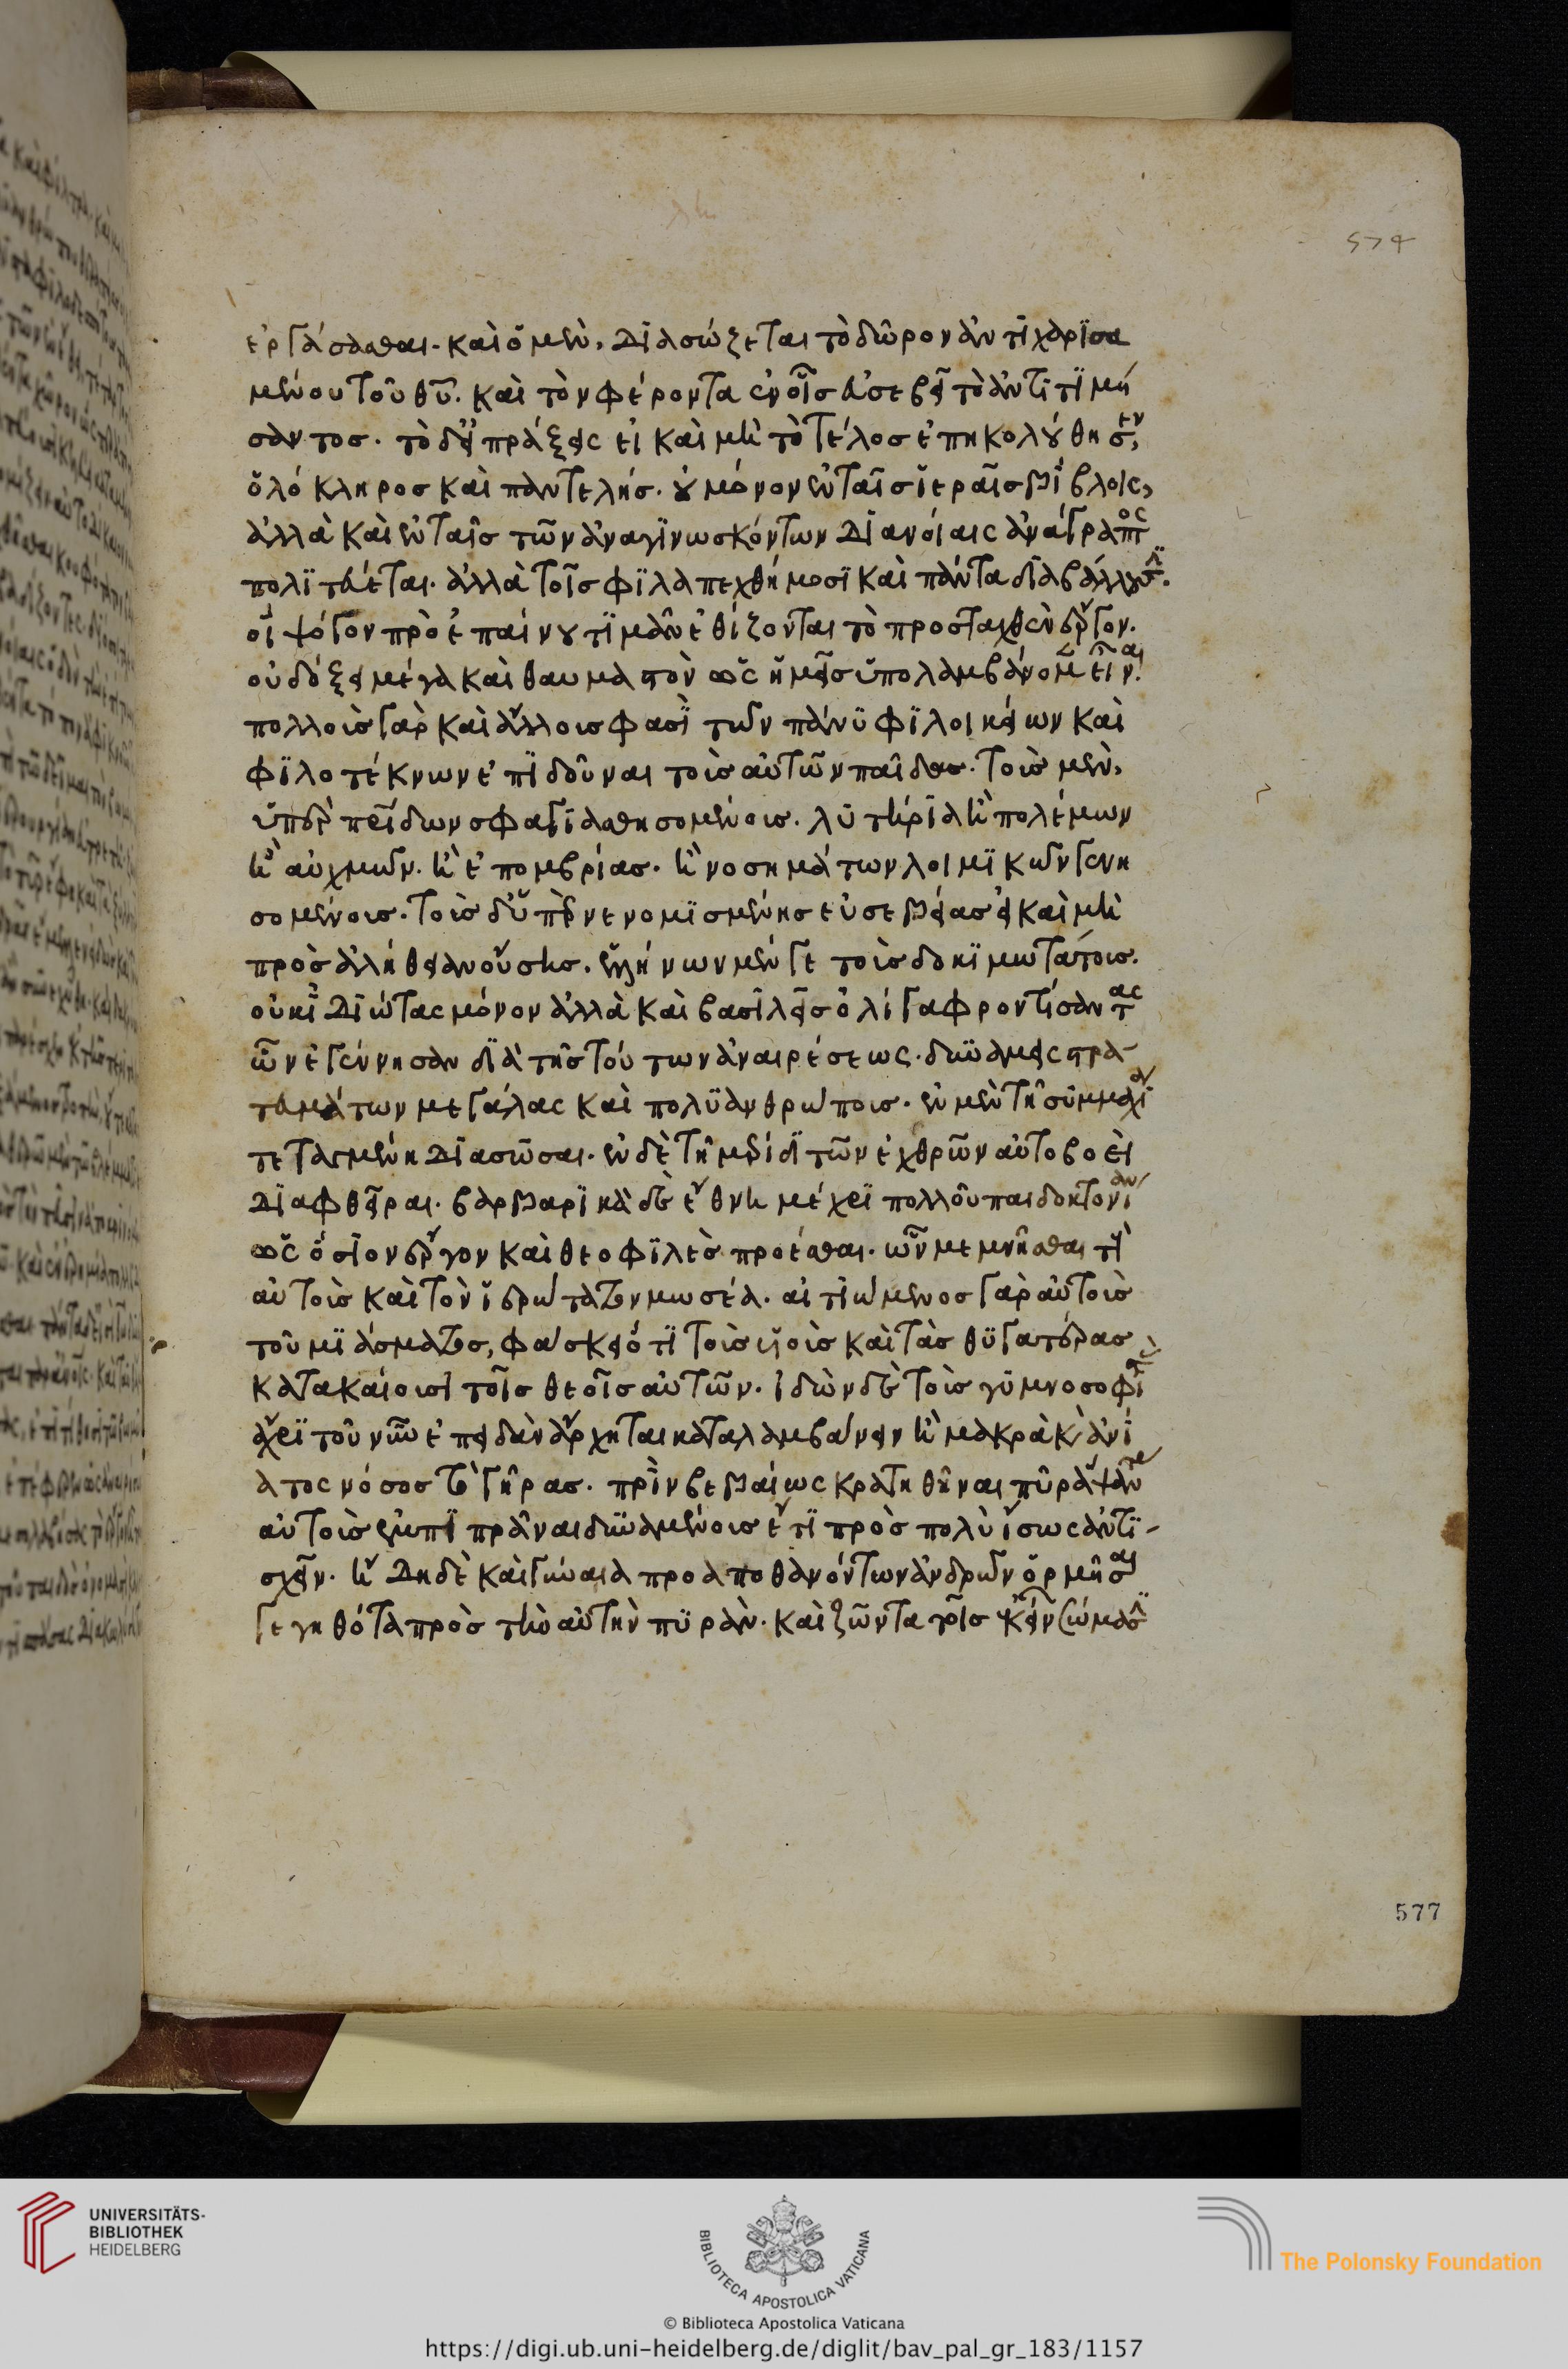 ἐργάσασθαι. καὶ ὁ μὲν, διασώζεται τὸ δῶρον ἀντιχαρισα
μένου τοῦ θυ. καὶ τὸν φέροντα ἐν οἷς εὐσεβεῖ τὸ ἀντιτιμή
σαντος. τὸ δ' ἡ πράξεις εἰ καὶ μὴ τὸ τέλος ἐπηκολούθησεν,
ὁλόκληρος καὶ παντελής. οὐ μόνον ἐν ταῖς ἱεραῖς βίβλοις,
ἀλλὰ καὶ ἐν ταῖς τῶν ἀναγινωσκόντων διανοίαις ἀνάγραπτος
πολιτεύεται. ἀλλὰ τοῖς φιλαπεχθήμοσι καὶ πάντα διαβάλλουσι.
οἳ ψόγον πρὸ ἐπαίνου τιμᾶν ἐθίζονται τὸ προσταχθὲν ἔργον.
οὐ δόξει μέγα καὶ θαυμαστὸν ὡς ἡμεῖς ὑπολαμβάνομεν εἶναι.
πολλοὺς γὰρ καὶ ἄλλους φασὶ τῶν πάνυ φιλοικείων καὶ
φιλοτέκνων ἐπιδοῦναι τοὺς αὐτῶν παῖδας. τοὺς μὲν,
ὑπὲρ πείδων σφαγιασθησομένους. λυτήρια ἢ πολέμων
ἢ αὐχμῶν. ἢ ἐπομβρίας. ἢ νοσημάτων λοιμικῶν γενη
σομένους. τοὺς δ' ὑπὲρ νενομισμένης εὐσεβείας εἰ καὶ μὴ
πρὸς ἀλήθειαν οὔσης. ἑλλήνων μέν γε τοὺς δοκιμωτάτους.
οὐκ ἰδιώτας μόνον ἀλλὰ καὶ βασιλεῖς ὀλίγα φροντίσαντας
ὧν ἐγέννησαν διὰ τῆς τούτων ἀναιρέσεως. δυνάμεις στρα
τευμάτων μεγάλας καὶ πολυανθρώπους. ἐν μὲν τῇ συμμαχία
τεταγμένη διασῶσαι. ἐν δὲ τῇ μερίδι τῶν ἐχθρῶν αὐτοβοεὶ
διαφθεῖραι. βαρβαρικὰ δὲ ἔθνη μέχρι πολλοῦ παιδοκτονίαν
ὡς ὅσιον ἔργον καὶ θεοφιλὲς προέσθαι. ὧν μεμνῆσθαι
αὐτοὺς καὶ τὸν ἱερώτατον μωσέα. αἰτιώμενος γὰρ αὐτοὺς
τοῦ μιάσματος, φάσκει ὅτι τοὺς υἱοὺς καὶ τὰς θυγατέρας
κατακαίουσι τοῖς θεοῖς αὐτῶν. ἰδιὼν δὲ τοὺς γυμνοσοφι
ἄχρι τοῦ νῦν ἐπειδὰν ἄρχηται καταλαμβάνειν ἡ μακρὰ κ ἀνί
ατος νόσος τὸ γῆρας. πρὶν βεβαίως κρατηθῆναι πυρὰ
αὐτοὺς ἐμπιπρᾶναι δυναμένους ἔτι πρὸς πολὺ ἴσως ἀντι
σχεῖν. ἤδη δὲ καὶ γύναια προαποθανόντων ἀνδρῶν ὁρμῆσαι
γεγηθότα πρὸς τὴν αὐτὴν πυράν. καὶ ζῶντα τοῖς ἐκείνων σώμασι
574
577
UNIVERSITÄTS-
BIBLIOTHEK
HEIDELBERG
BIBLIOTECA APOSTOLICA VATICANA
The Polonsky Foundation
© Biblioteca Apostolica Vaticana
https://digi.ub.uni-heidelberg.de/diglit/bav_pal_gr_183/1157